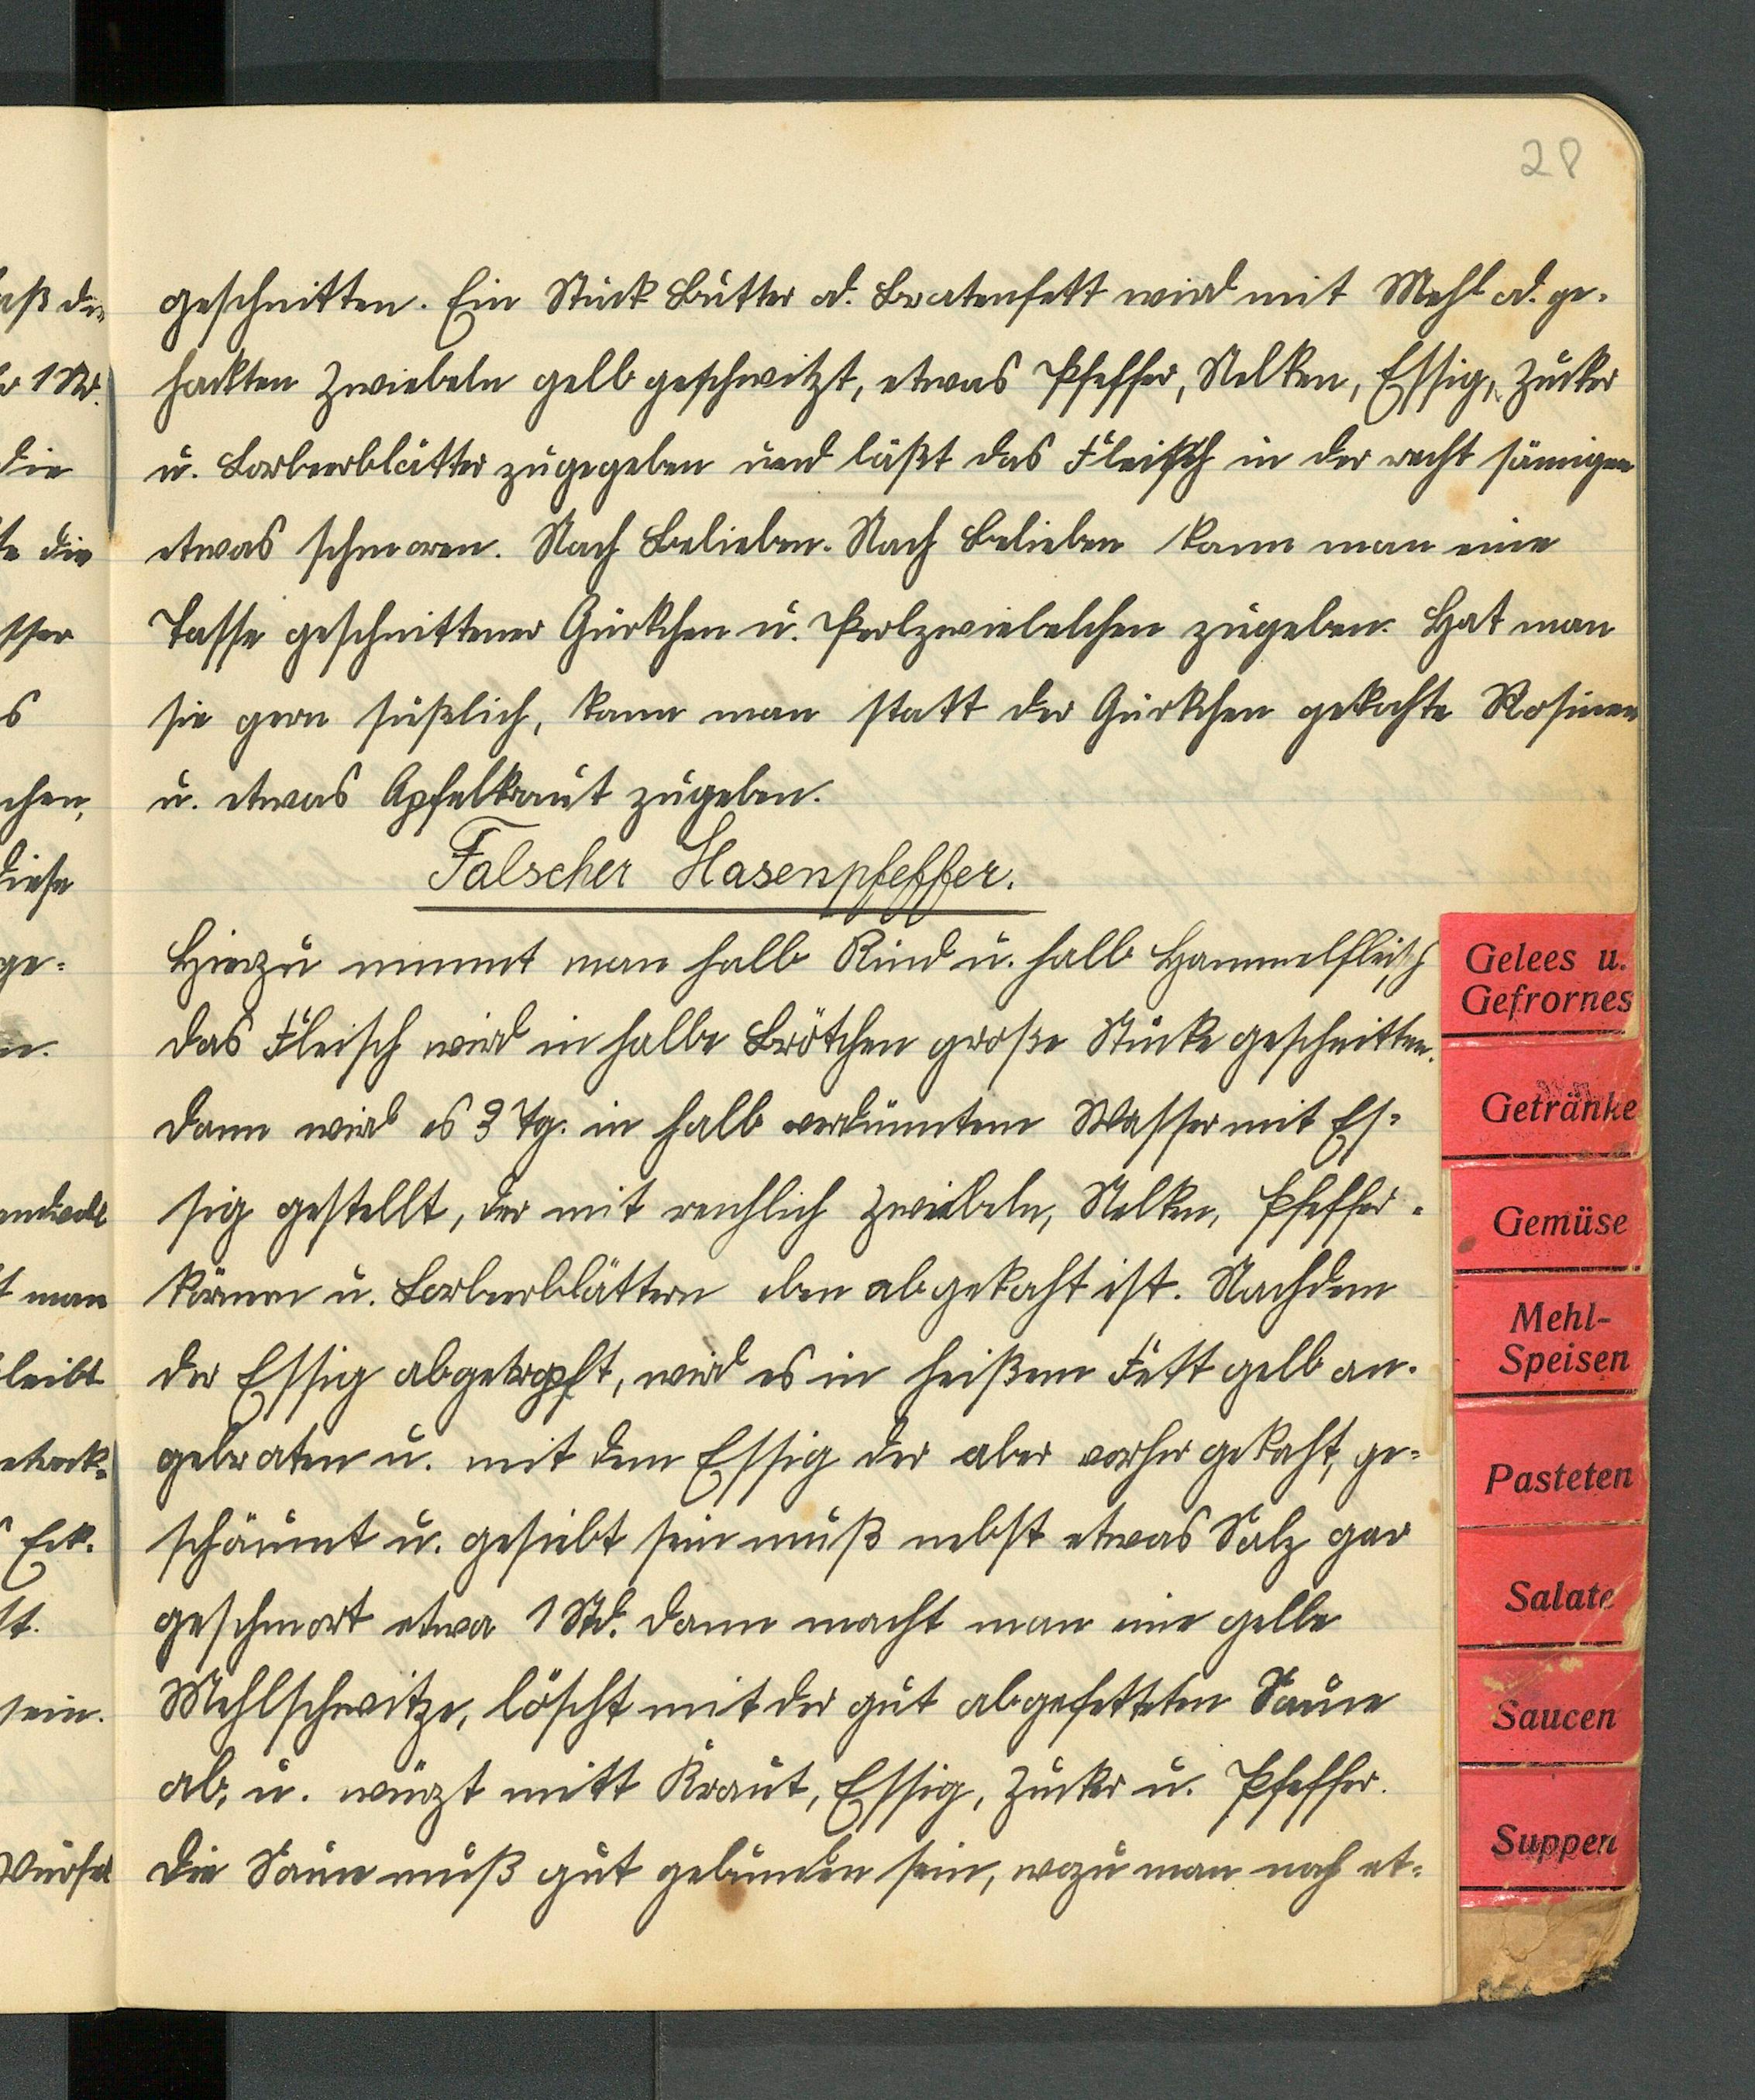 28
geschnitten. Ein Stück Butter od. Bratenfett wird mit Mehl od. ge-
hackten Zwiebeln gelb geschwitzt, etwas Pfeffer, Nelken, Essig, Zucker
u. Lorbeerblätter zugegeben und läßt das Fleisch in der recht sämigen
etwas schmoren. Nach Belieben. Nach Belieben kann man eine
Tasse geschnittener Gürkchen u. Perlzwiebelchen zugeben. Hat man
sie gern süßlich, kann man statt der Gürkchen gekochte Rosinen
u. etwas Apfelkraut zugeben.
Falscher Hasenpfeffer.
Hierzu nimmt man halb Rind u. halb Hammelfleisch
das Fleisch wird in halbe Brötchen große Stücke geschnitten.
dann wird es 3 Tg. in halb verdünntem Wasser mit Es-
sig gestellt, der mit reichlich Zwiebeln, Nelken, Pfeffer-
körnern u. Lorbeerblättern eben abgekocht ist. Nachdem
der Essig abgetropft, wird es in heißem Fett gelb an-
gebraten u. mit dem Essig der aber vorher gekocht, ge-
schäumt u. gesiebt sein muß nebst etwas Salz gar
geschmort etwa 1 Std. dann macht man eine gelbe
Mehlschwitze, löscht mit der gut abgefetteten Sauce
ab, u. würzt mitt Kraut, Essig, Zucker u. Pfeffer.
die Sauce muß gut gebunden sein, wozu man noch et-
Gelees u.
Gefrornes
Getränke
Gemüse
Mehl-
Speisen
Pasteten
Salate
Saucen
Suppen